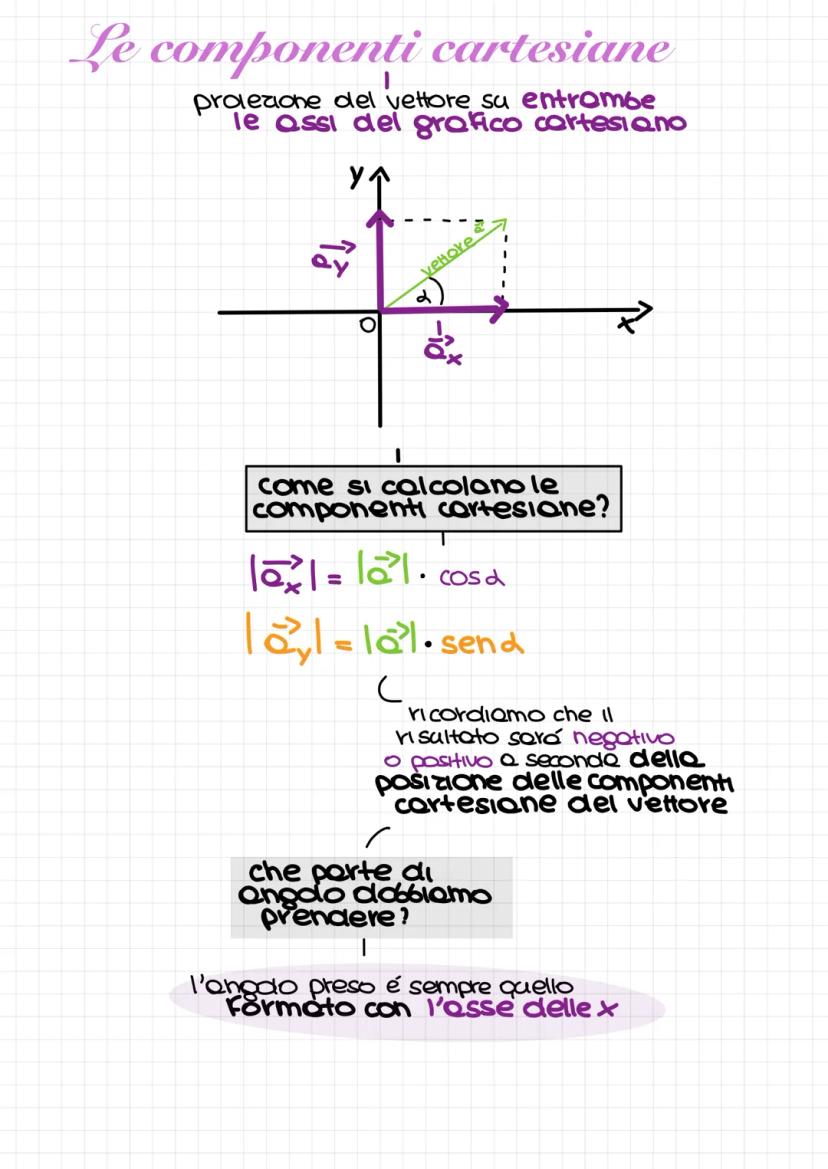 Le componenti cartesiane
proiezione del vettore su entrambe
le assi del grafico cartesiano
y
a⃗y
vettore a⃗
α
O
x
a⃗x
come si calcolano le
componenti cartesiane?
|a⃗x| = |a⃗| · cosα
|a⃗y| = |a⃗| · senα
ricordiamo che il
risultato sará negativo
o positivo a seconda della
posizione delle componenti
cartesiane del vettore
che parte di
angolo dobbiamo
prendere?
l'angolo preso é sempre quello
formato con l'asse delle x